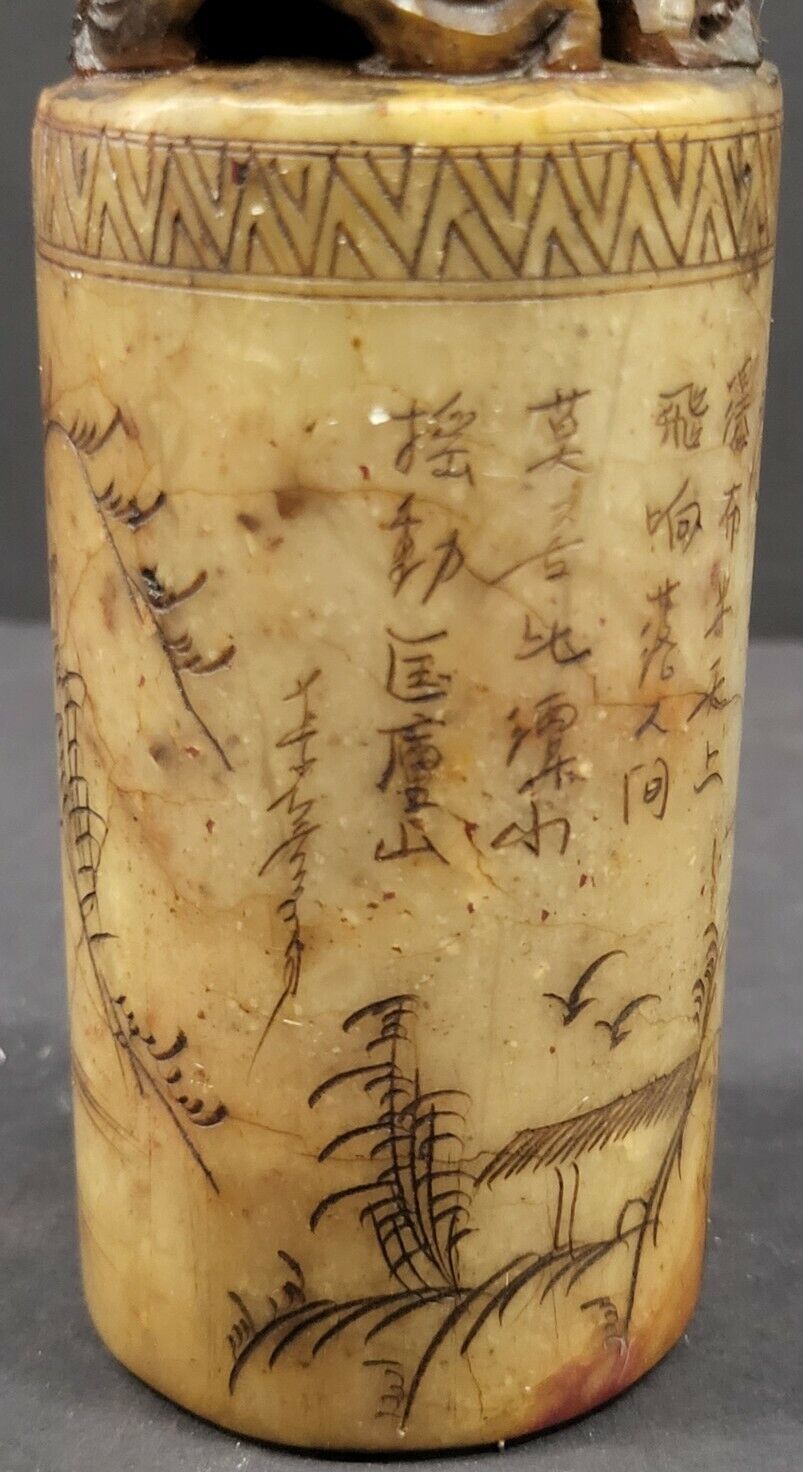 瀑布半天上
飛响落人间
莫言此潭小
摇動匡廬山